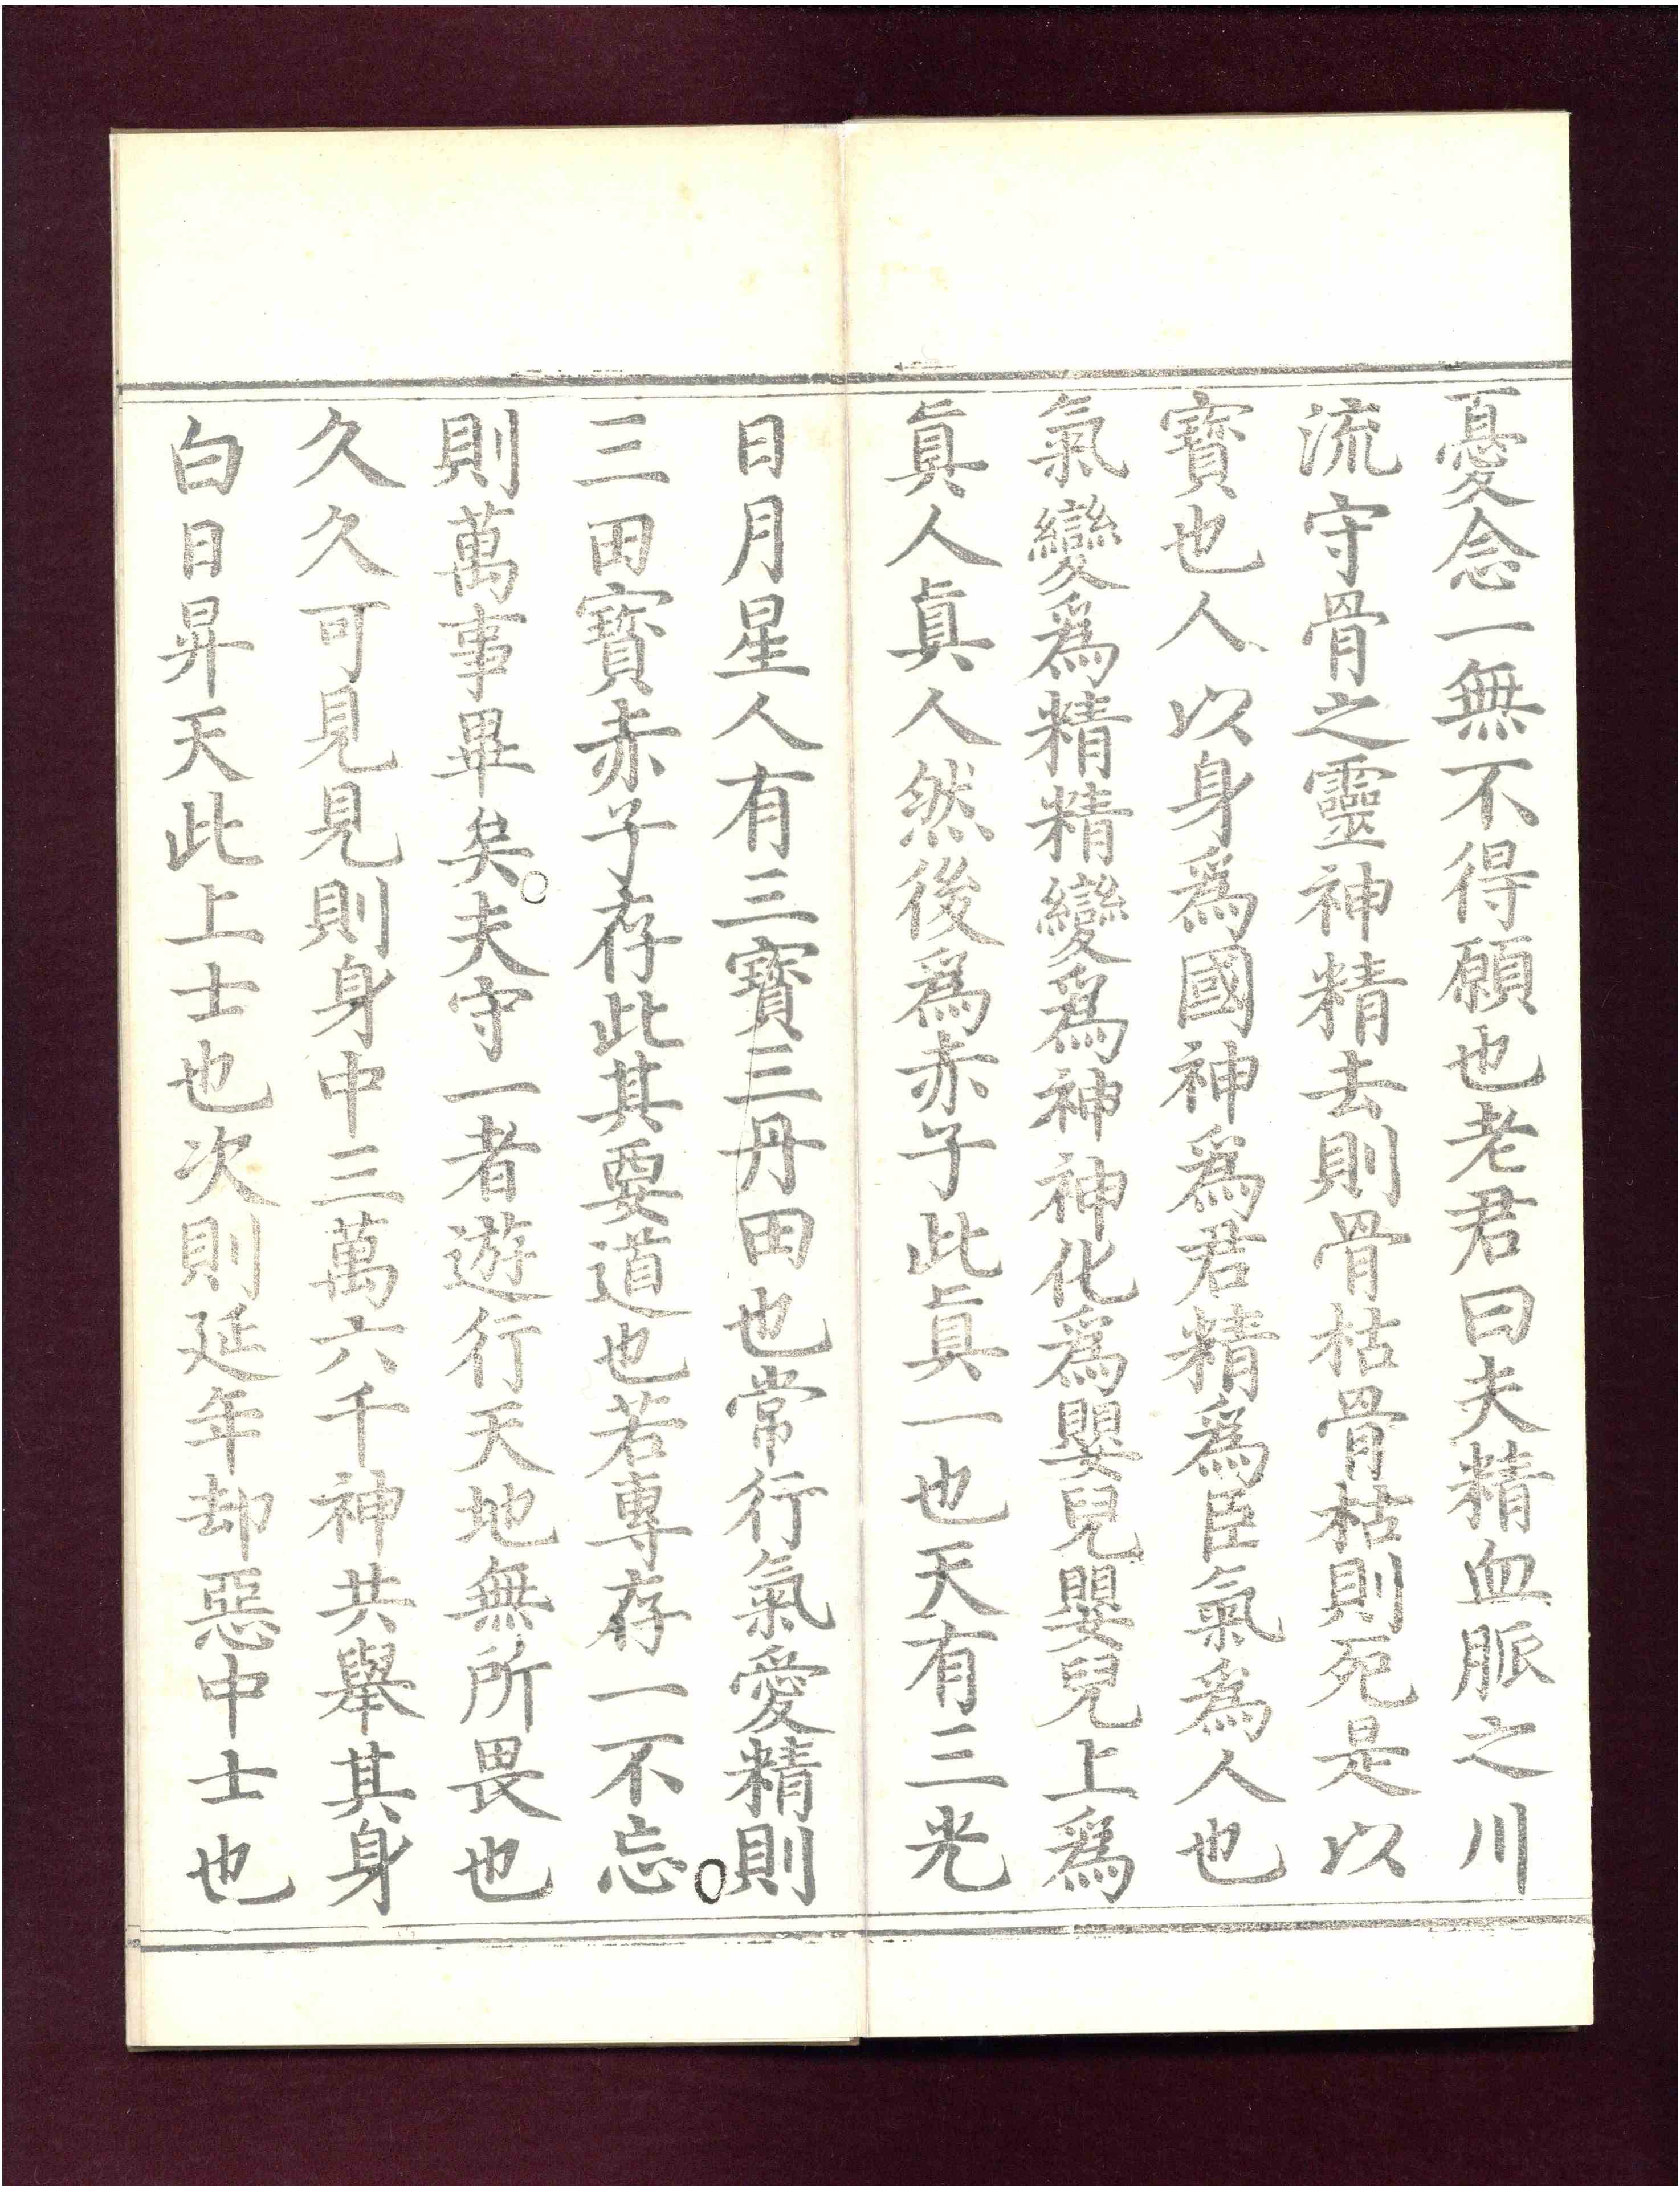 憂念一無不得願也老君曰夫精血脈之川
流守骨之靈神精去則骨枯骨枯則死是以
寶也人以身爲國神爲君精爲臣氣爲人也
氣變爲精精變爲神神化爲嬰兒嬰兒上爲
眞人眞人然後爲赤子此眞一也天有三光
日月星人有三寶三丹田也常行氣愛精則
三田寶赤子存此其要道也若專存一不忘
則萬事畢矣。夫守一者遊行天地無所畏也
久久可見見則身中三萬六千神共舉其身
白日昇天此上士也次則延年却惡中士也